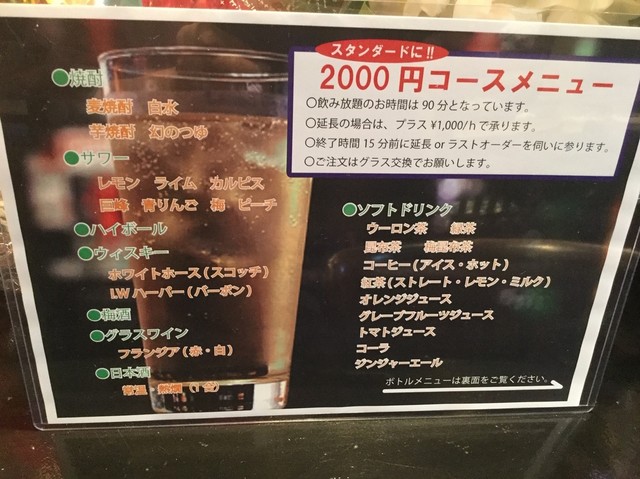 スタンダードに!!
2000円コースメニュー
○飲み放題のお時間は90分となっています。
○延長の場合は、プラス¥1,000/hで承ります。
○終了時間15分前に延長orラストオーダーを伺いに参ります。
○ご注文はグラス交換でお願いします。
●焼酎
麦焼酎 白水
芋焼酎 幻のつゆ
●サワー
レモン ライム カルピス
巨峰 青りんご 梅 ピーチ
●ハイボール
●ウィスキー
ホワイトホース(スコッチ)
I.Wハーパー(バーボン)
●梅酒
●グラスワイン
フランジア(赤・白)
●日本酒
常温・熱燗(1合)
●ソフトドリンク
ウーロン茶 緑茶
昆布茶 梅昆布茶
コーヒー(アイス・ホット)
紅茶(ストレート・レモン・ミルク)
オレンジジュース
グレープフルーツジュース
トマトジュース
コーラ
ジンジャーエール
ボトルメニューは裏面をご覧ください。